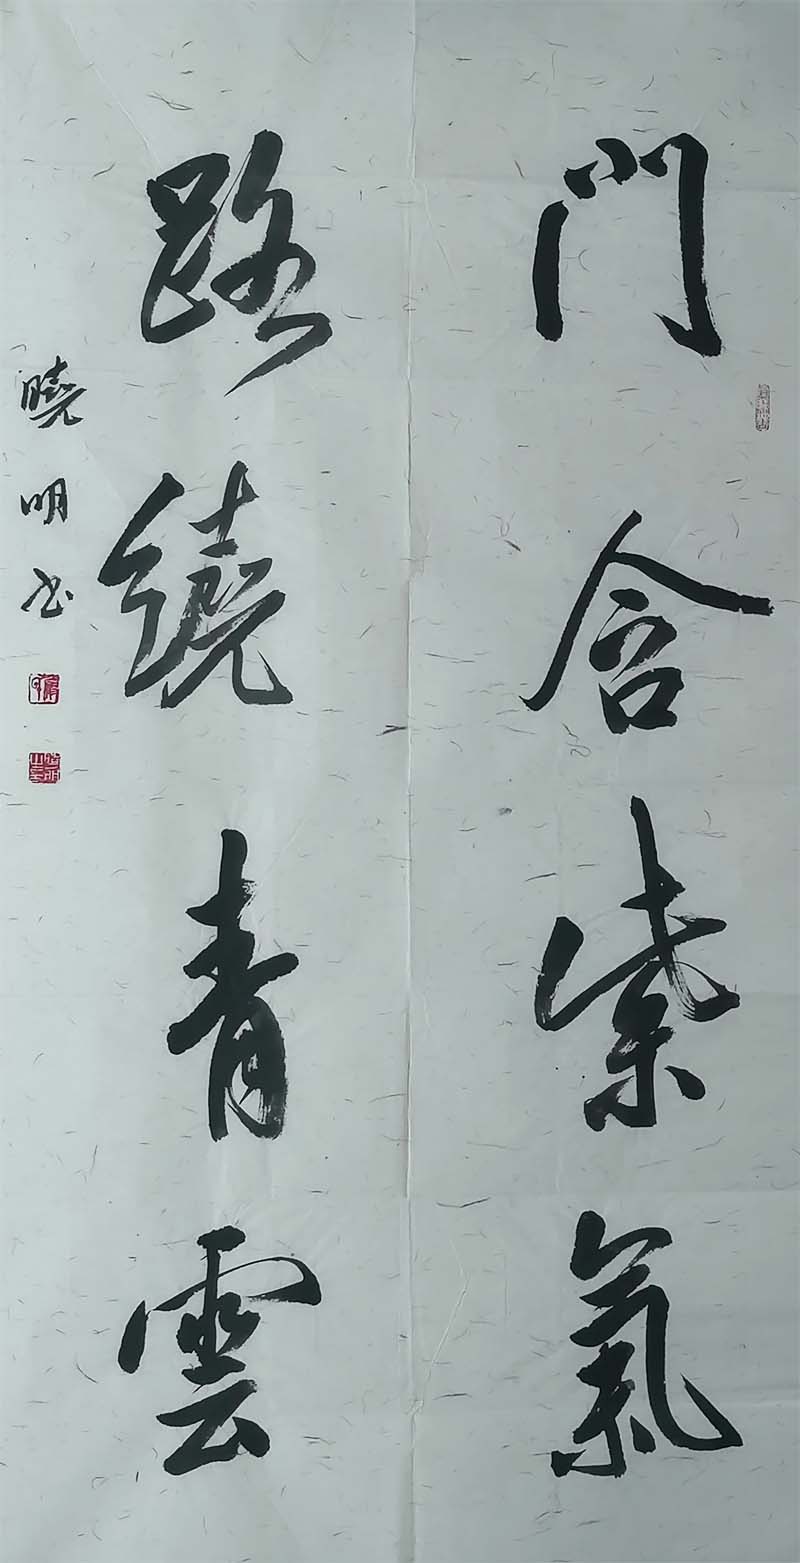 門含紫氣
路繞青雲
曉明书